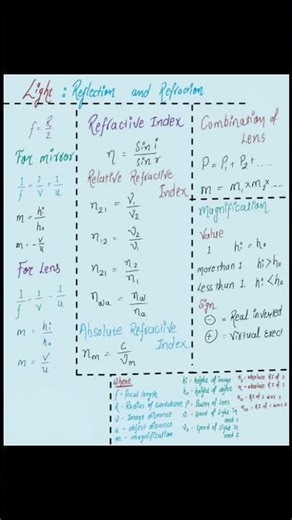 Light : Reflection and Refraction
f = R/2
For mirror
1/f = 1/v + 1/u
m = hi/ho
m = -v/u
For Lens
1/f = 1/v - 1/u
m = hi/ho
m = v/u
Refractive Index
η = Sin i / sin r
Relative Refractive
Index
n21 = v1/v2
n12 = v2/v1
n21 = n2/n1
Absolute Refractive
Index
nm = c/vm
Combination of
Lens
P = P1 + P2 + .....
m = m1 × m2 × ...
Magnification
Value
1 hi = ho
more than 1 hi > ho
Less than 1 hi < ho
Sign
⊖ = Real inverted
⊕ = Virtual Erect
Where
f - Focal length
R - Radius of curvature
v - Image distance
u - object distance
m - magnification
hi - height of image
ho - height of object
P - Power of Lens
v1 - speed of light in
v2 - speed of light in